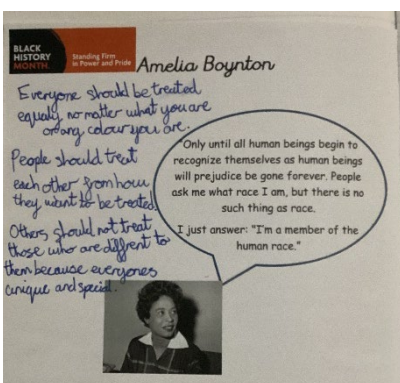 BLACK
HISTORY
MONTH
Standing Firm
in Power and Pride
Amelia Boynton
Everyone should be treated
equaly no matter what you are
or any colour you are.
People should treat
each other from how
they want to be treated.
Others should not treat
those who are diffrent to
them because everyones
unique and special.
"Only until all human beings begin to
recognize themselves as human beings
will prejudice be gone forever. People
ask me what race I am, but there is no
such thing as race.
I just answer: "I'm a member of the
human race."